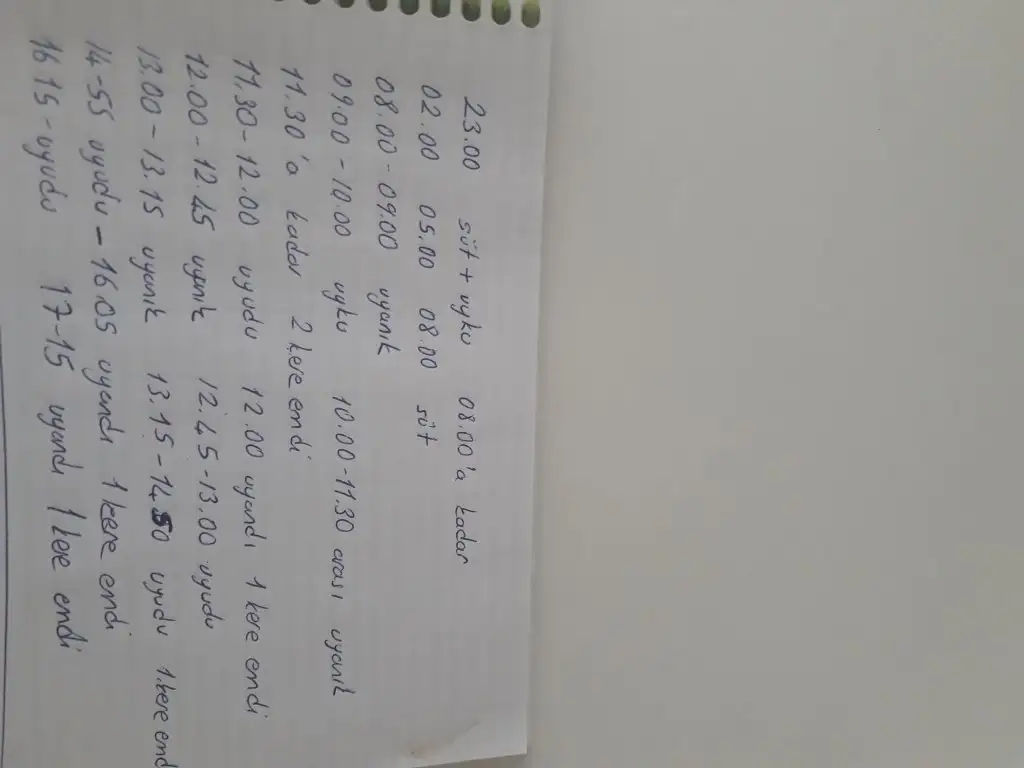 23.00 süt + uyku 08.00'a kadar
02.00 05.00 08.00 süt
08.00 - 09.00 uyanık
09.00 - 10.00 uyku 10.00-11.30 arası uyanık
11.30'a kadar 2 kere emdi
11.30 - 12.00 uyudu 12.00 uyandı 1 kere emdi
12.00 - 12.45 uyanık 12.45-13.00 uyudu
13.00 - 13.15 uyanık 13.15-14.50 uyudu 1 kere emd
14-55 uyudu - 16.05 uyandı 1 kere emdi
16 15 - uyudu 17-15 uyandı 1 kere emdi